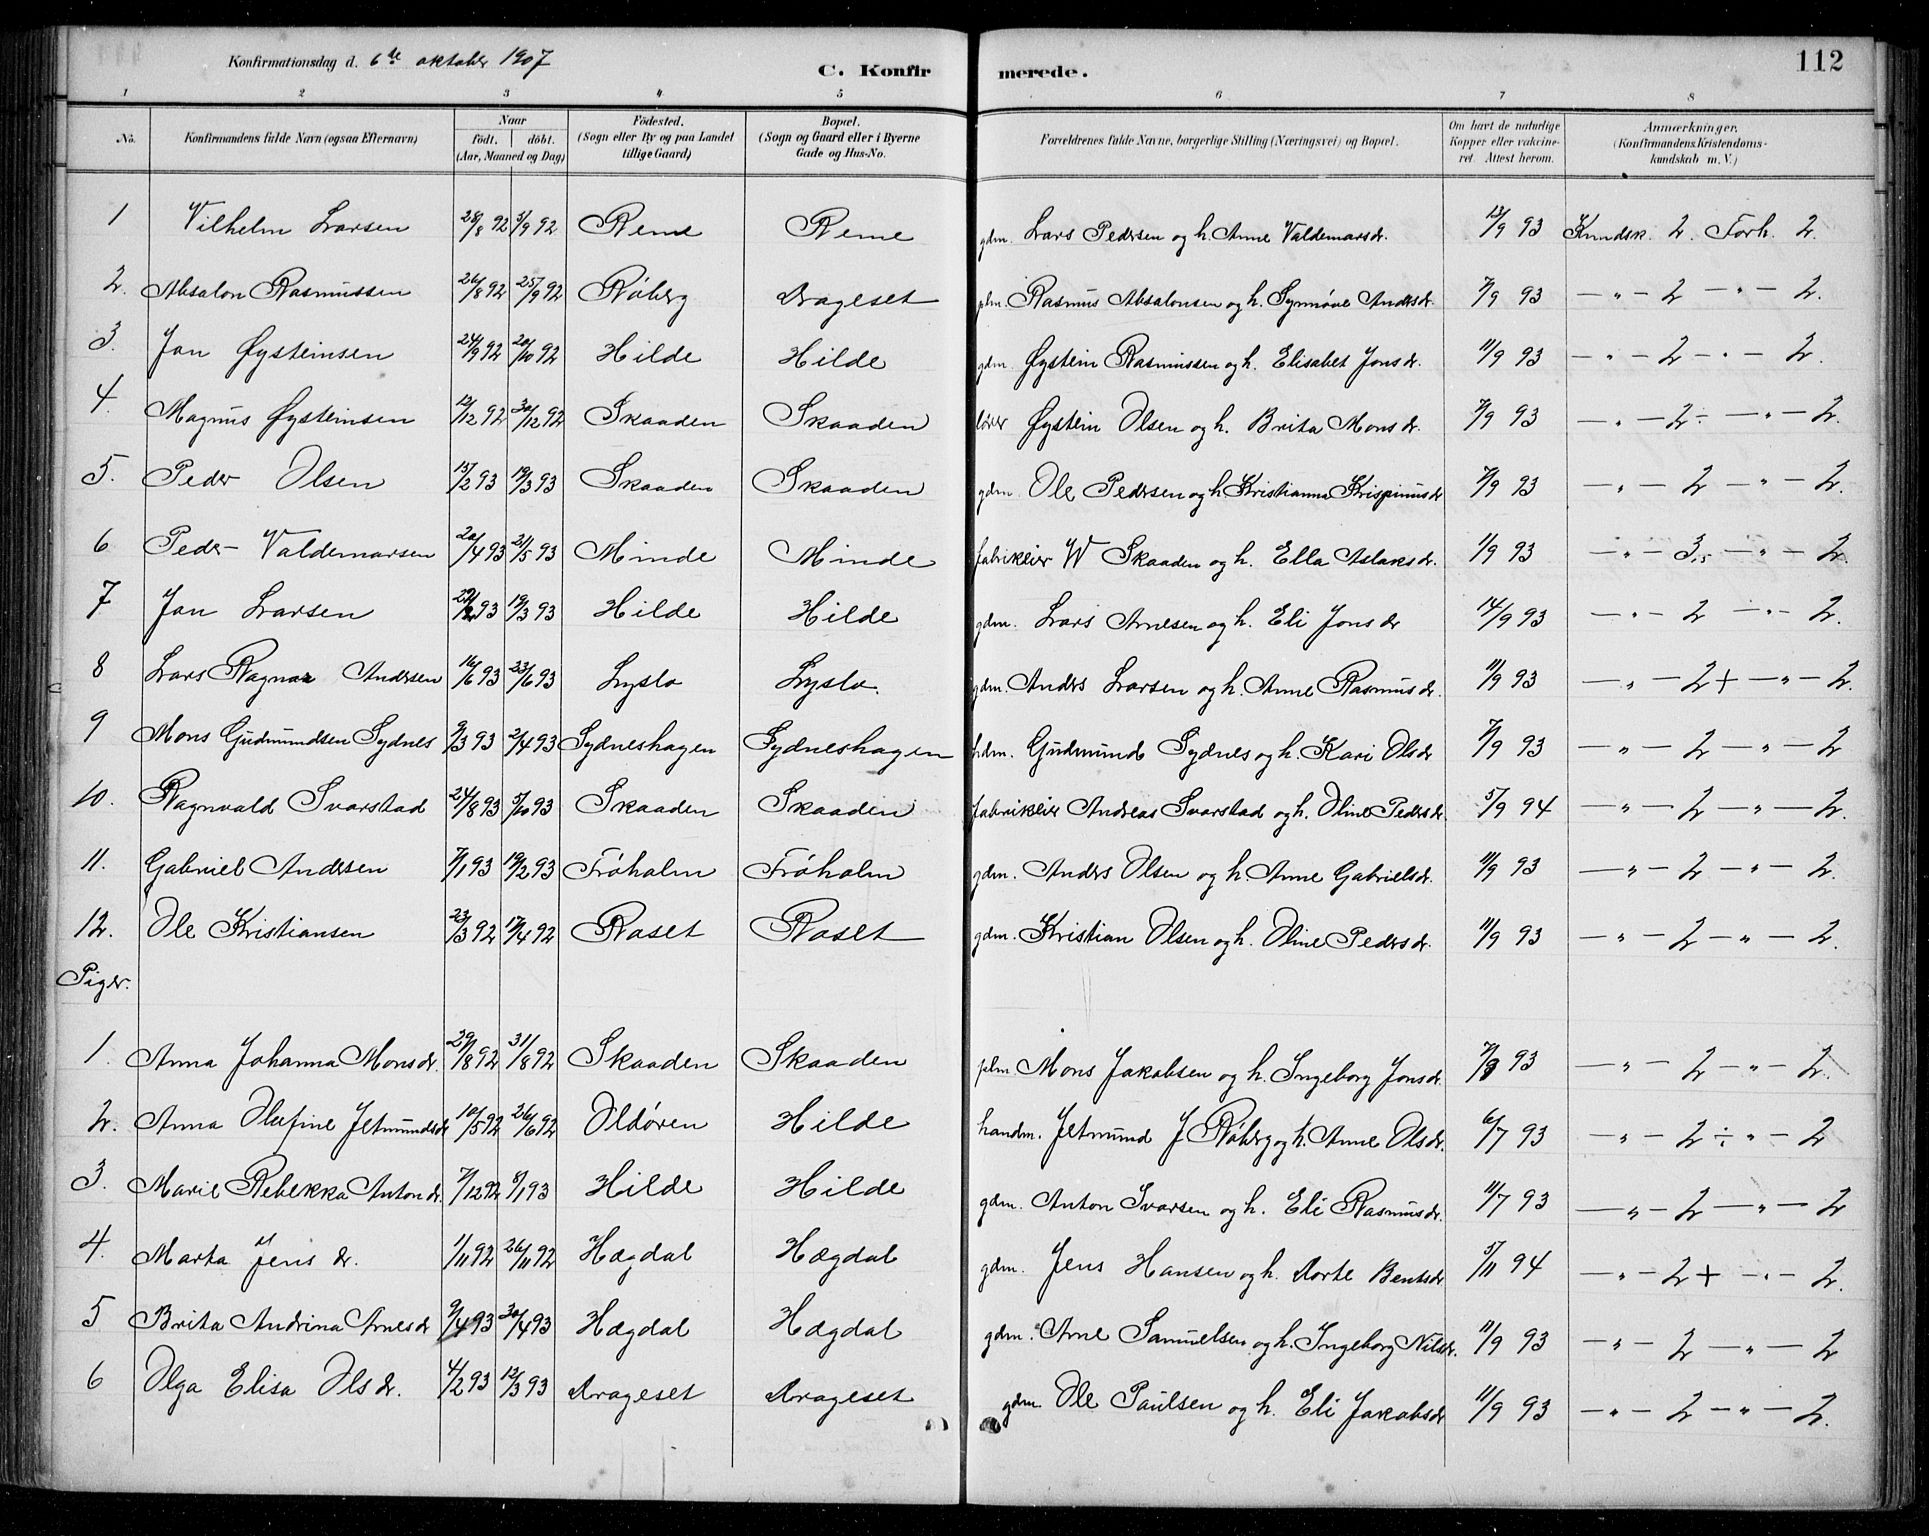 Konfirmationsdag d. 6te oktober 1907 C. Konfirmerede. 112
1 2 3 4 5 6 7 8
No. Konfirmandens fulde Navn (ogsaa Efternavn) Naar födt. döbt. (Aar, Maaned og Dag) Födested. (Sogn eller By og paa Landet tillige Gaard) Bopæl. (Sogn og Gaard eller i Byerne Gade og Hus-No. Forældrenes fulde Navne, borgerlige Stilling (Næringsvei) og Bopæl. Om havt de naturlige Kopper eller vakcineret. Attest herom. Anmærkninger. (Konfirmandens Kristendomskundskab m. V.)
1 Vilhelm Larsen 28/8 92 3/9 92 Reme Reme gdm. Lars Pedersen og h. Anne Valdemarsdr. 13/9 93 Kundsk. 2. Forh. 2.
2. Absalon Rasmussen 26/8 92 25/9 92 Röberg Drageset plm. Rasmus Absalonsen og h. Synnöve Andersdr. 7/9 93 — " — 2 — " — 2.
3. Jon Øysteinsen 24/9 92 20/10 92 Hilde Hilde gdm. Øystein Rasmussen og h. Elisabet Jonsdr. 11/9 93 — " — 2 — " — 2.
4. Magnus Øysteinsen 12/12 92 30/12 92 Skaaden Skaaden lærer Øystein Olsen og h. Brita Monsdr. 7/9 93 — " — 2÷ — " — 2.
5. Peder Olsen 15/2 93 19/3 93 Skaaden Skaaden gdm. Ole Pedersen og h. Kristianna Krispinusdr 7/9 93 — " — 2 — " — 2.
6 Peder Valdemarsen 20/4 93 21/5 93 Minde Minde fabrikeier W Skaaden og h. Ella Aslaksdr. 1/9 93 — " — 3,5 — " — 2.
7 Jon Larsen 22/2 93 19/3 93 Hilde Hilde gdm. Lars Arnesen og h. Eli Jonsdr 14/9 93 — " — 2 — " — 2.
8 Lars Ragnar Andersen 16/6 93 23/6 93 Lyslo Lyslo. gdm. Anders Larsen og h. Anne Rasmusdr. 11/9 93 — " — 2+ — " — 2.
9 Mons Gudmundsen Sydnes 9/3 93 2/4 93 Sydneshagen Sydneshagen hdm. Gudmund Sydnes og h. Kari Olsdr 7/9 93 — " — 2 — " — 2
10. Ragnvald Svarstad 24/8 93 5/10 93 Skaaden Skaaden fabrikeier Andreas Svarstad og h. Oline Pedersdr. 5/9 94 — " — 2 — " — 2.
11. Gabriel Andersen 7/1 93 19/2 93 Fröholm Fröholm gdm. Anders Olsen og h. Anne Gabrielsdr. 11/9 93 — " — 2 — " — 2.
12. Ole Kristiansen 23/3 92 17/4 92 Raset Raset gdm. Kristian Olsen og h. Oline Pedersdr. 11/9 93 — " — 2 — " — 2.
Piger.
1. Anna Johanna Monsdr. 29/8 92 31/8 92 Skaaden Skaaden plm. Mons Jakobsen og h. Ingeborg Jonsdr. 7/9 93 — " — 2 — " — 2.
2. Anna Olufine Jetmundsdr 10/5 92 26/6 92 Oldören Hilde handm. Jetmund J Röberg og h. Anne Olsdr. 6/7 93 — " — 2÷ " — 2
3. Marie Rebekka Antondr. 7/12 92 8/1 93 Hilde Hilde gdm. Anton Ivarsen og h. Eli Rasmusdr. 11/7 93 — " — 2 — " — 2
4. Marta Jensdr. 1/11 92 26/11 92 Hægdal Hægdal gdm. Jens Hansen og h. Dorte Bentsdr 5/11 94 — " — 2+ — " — 2.
5 Brita Andrina Arnesdr 9/4 93 30/4 93 Hægdal Hægdal gdm. Arne Samuelsen og h. Ingeborg Nilsdr. 11/9 93 — " — 2 — " — 2
6 Olga Elisa Olsdr. 4/2 93 12/3 93 Drageset Drageset gdm. Ole Paulsen og h. Eli Jakobsdr 11/9 93 — " — 2 — " — 2.